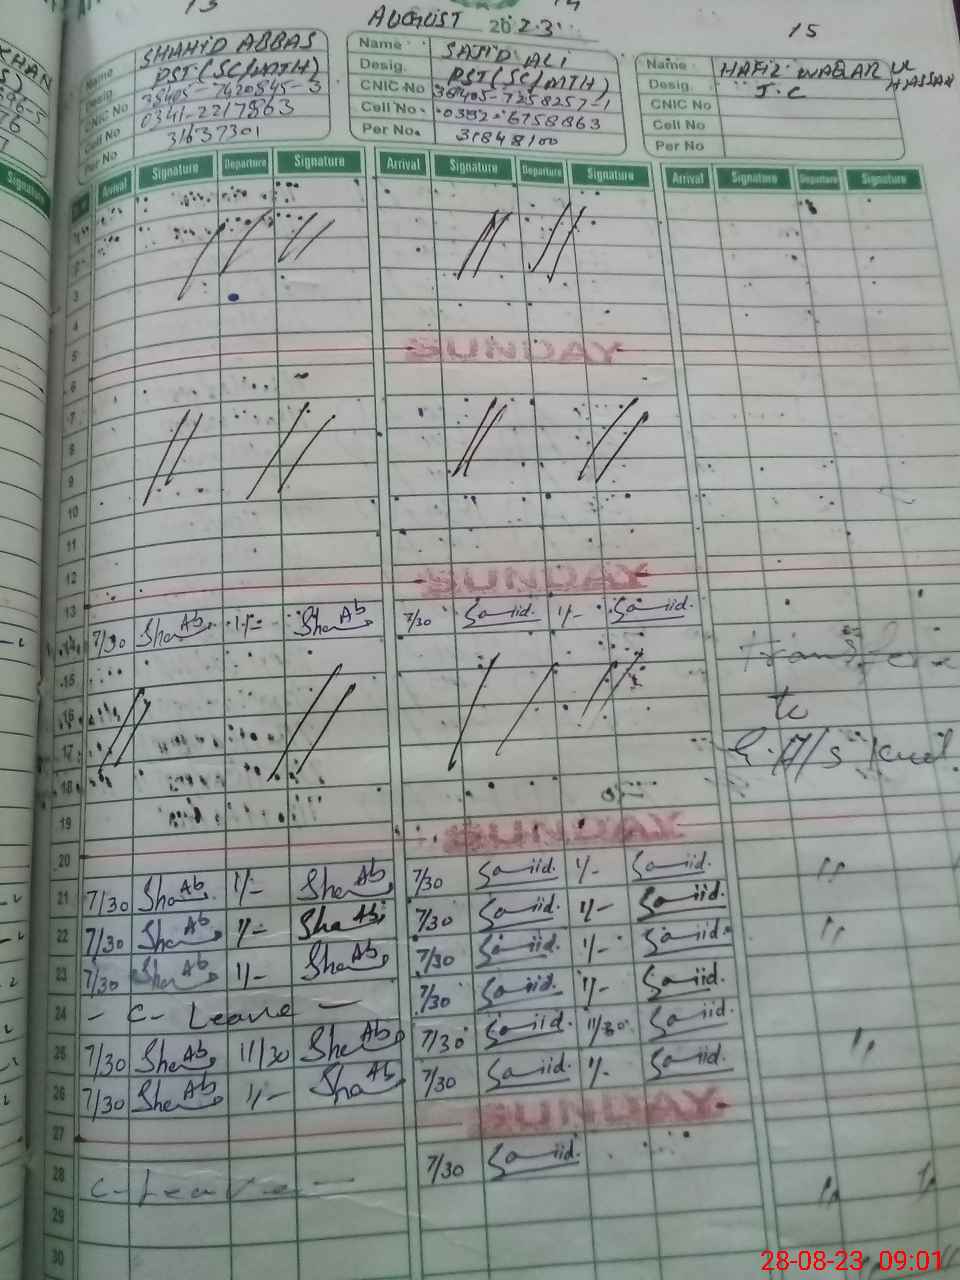 13
14
15
AUGUST 2023
Name SHAHID ABBAS
Desig. PST (SC/MATH)
CNIC No 38405-7420845-3
Cell No 0341-2217863
Per No 31637301
Name SAJID ALI
Desig. PST (SC/MATH)
CNIC No 38405-7358257-1
Cell No 0332-6758863
Per No. 31848100
Name HAFIZ WAQAR UL HASSAN
Desig. J.C
CNIC No
Cell No
Per No
Arrival Signature Departure Signature Arrival Signature Departure Signature Arrival Signature Departure Signature
3
4
5 SUNDAY
6
7
8
9
10
11
12 SUNDAY
13
14 7/30 ShaAb 1/- ShaAb 7/30 Sajid. 1/- Sajid.
15
16 to
17
18
19
SUNDAY
20
21 7/30 ShaAb 1/- ShaAb 7/30 Sajid. 1/- Sajid. 11
22 7/30 ShaAb 1/- ShaAb 7/30 Sajid. 1/- Sajid.
23 7/30 ShaAb 1/- ShaAb 7/30 Sajid. 1/- Sajid. 11
24 - C- Leave - 7/30 Sajid. 1/- Sajid.
25 7/30 ShaAb 11/30 ShaAb 7/30 Sajid. 11/30 Sajid.
26 7/30 ShaAb 1/- ShaAb 7/30 Sajid. 1/- Sajid. 11
27 SUNDAY
28 C- Leave - 7/30 Sajid.
29
30
28-08-23 09:01